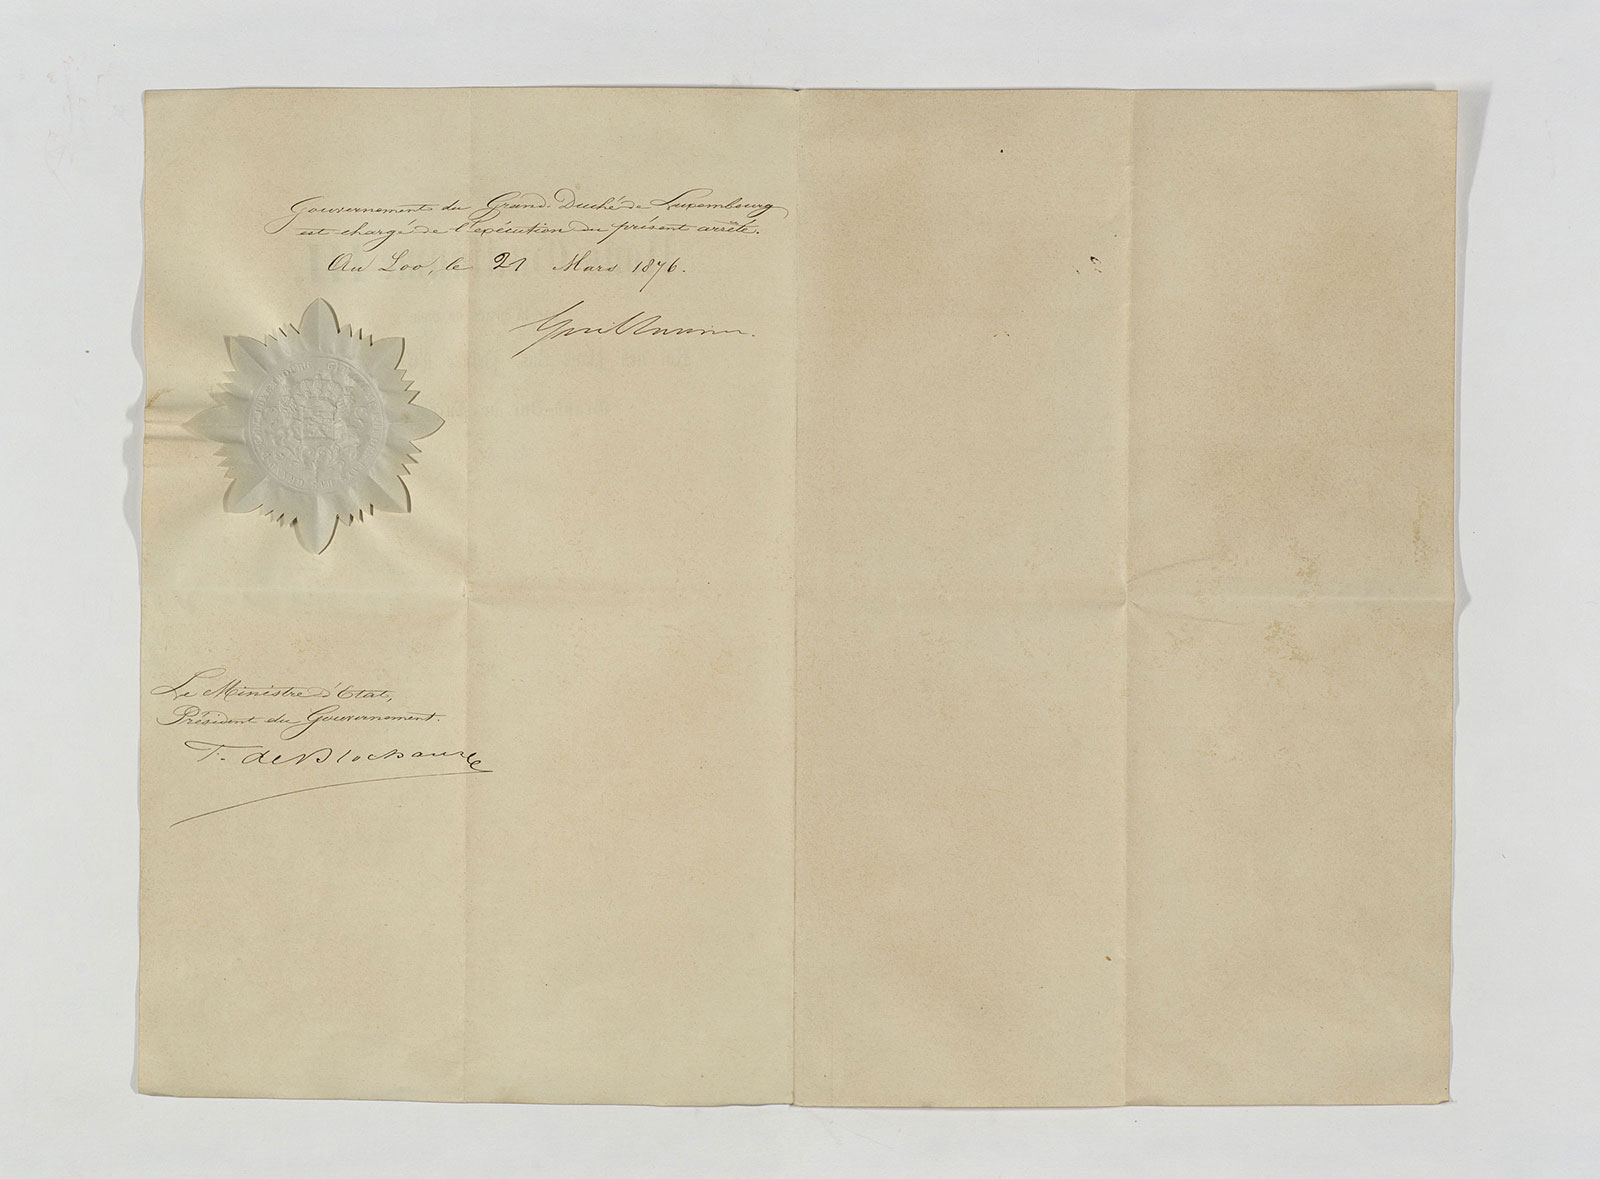 Gouvernement du Grand-Duché de Luxembourg
est chargé de l'exécution du présent arrêté.
Au Loo, le 21 Mars 1876.
Guillaume.
Le Ministre d'Etat,
Président du Gouvernement.
F. de Blochausen